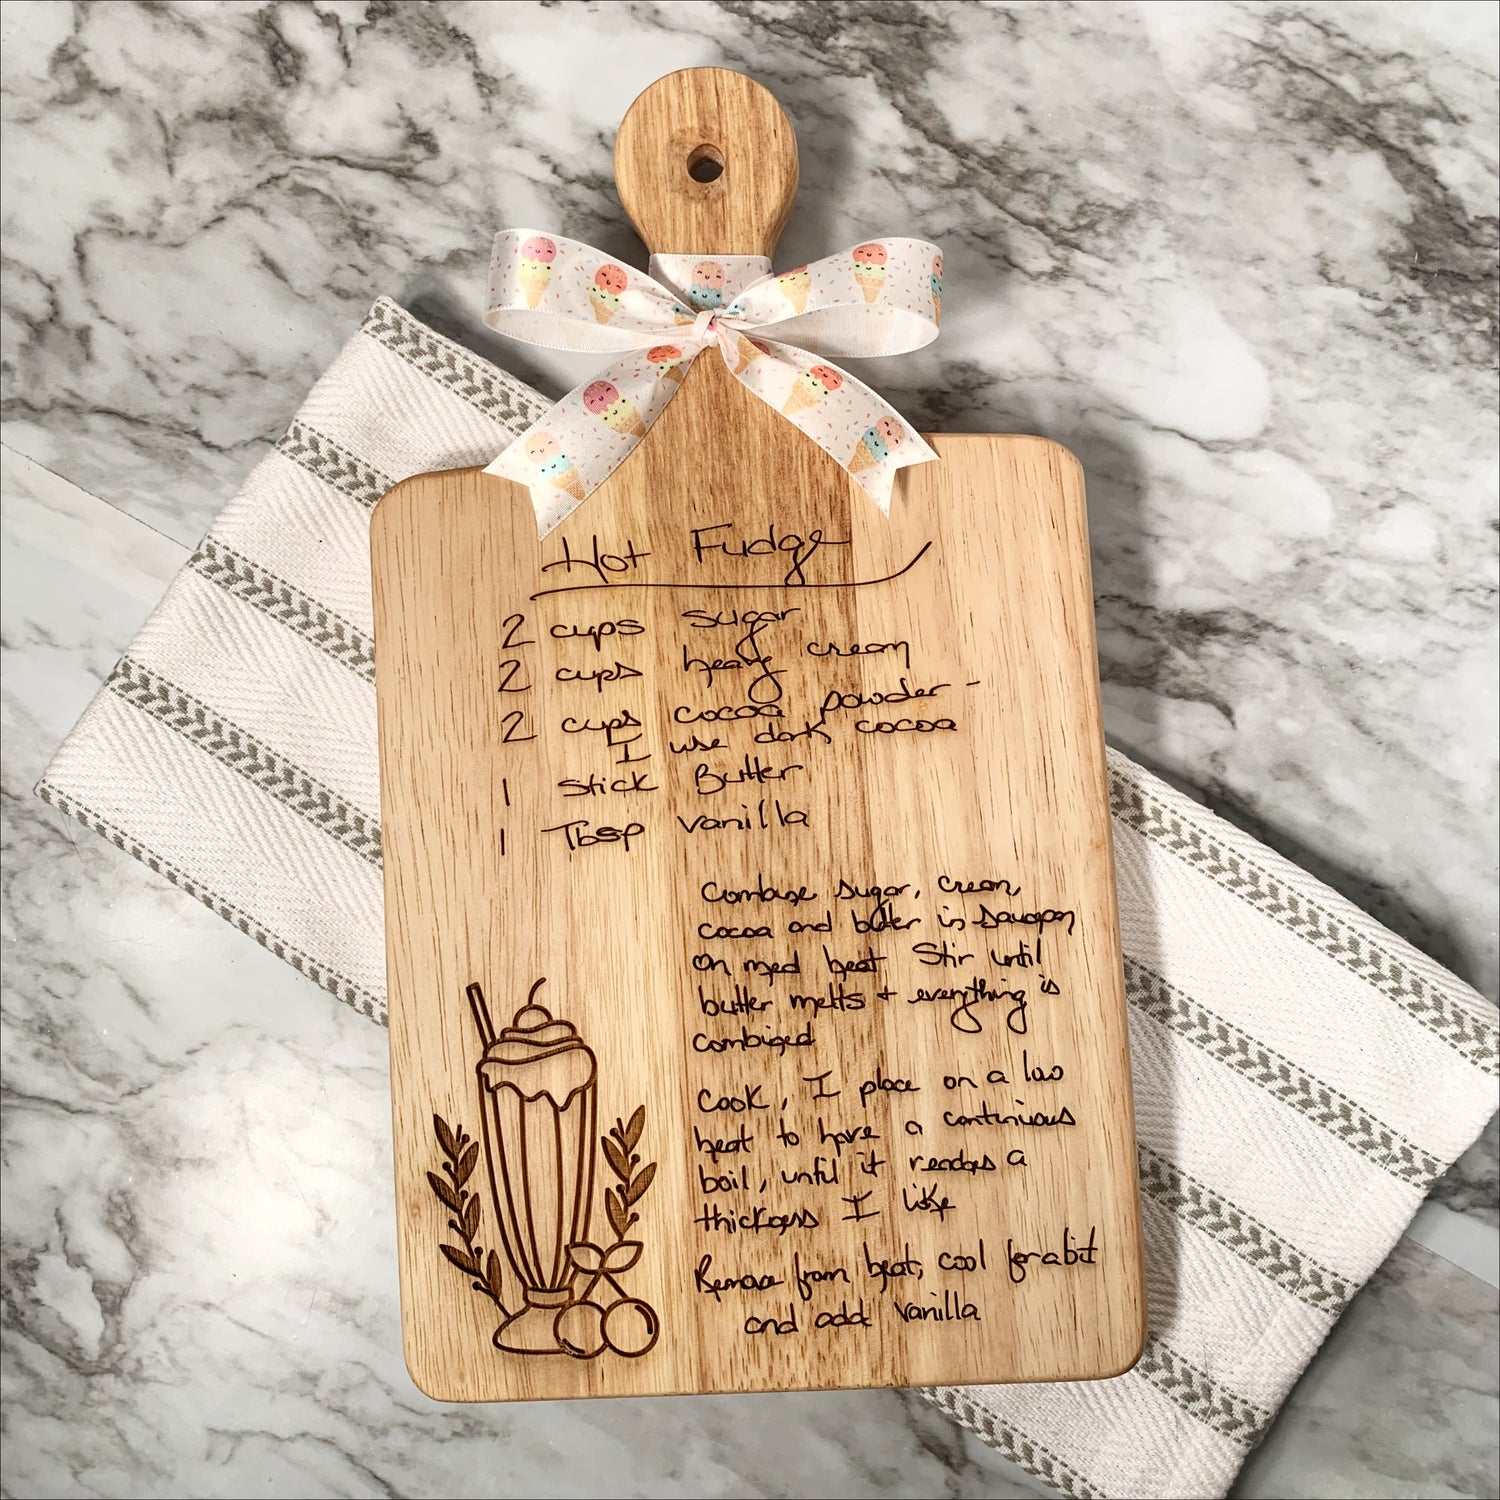 Hot Fudge
2 cups sugar
2 cups heavy cream
2 cups cocoa powder -
I use dark cocoa
1 Stick Butter
1 Tbsp vanilla
Combine sugar, cream,
cocoa and butter in saucepan
on med heat Stir until
butter melts + everything is
combined
Cook, I place on a low
heat to have a continuous
boil, until it reaches a
thickness I like
Remove from heat, cool for a bit
and add vanilla